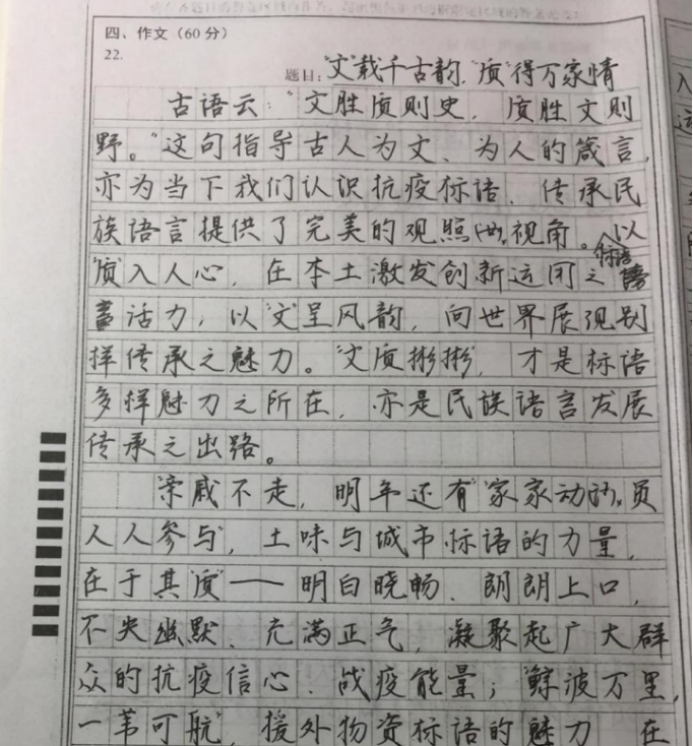 四、作文(60分)
22.
题目:“文”载千古韵,“质”得万家情
古语云:“文胜质则史,质胜文则
野。”这句指导古人为文、为人的箴言,
亦为当下我们认识抗疫标语、传承民
族语言提供了完美的观照视角。以
“质”入人心,在本土激发创新运用之标语
活力,以“文”呈风韵,向世界展现别
样传承之魅力。“文质彬彬”,才是标语
多样魅力之所在,亦是民族语言发展
传承之出路。
“亲戚不走,明年还有”“家家动员,
人人参与”,土味与城市标语的力量,
在于其“质”——明白晓畅、朗朗上口,
不失幽默、充满正气,凝聚起广大群
众的抗疫信心、战疫能量;“鲸波万里,
一苇可航”,援外物资标语的魅力,在